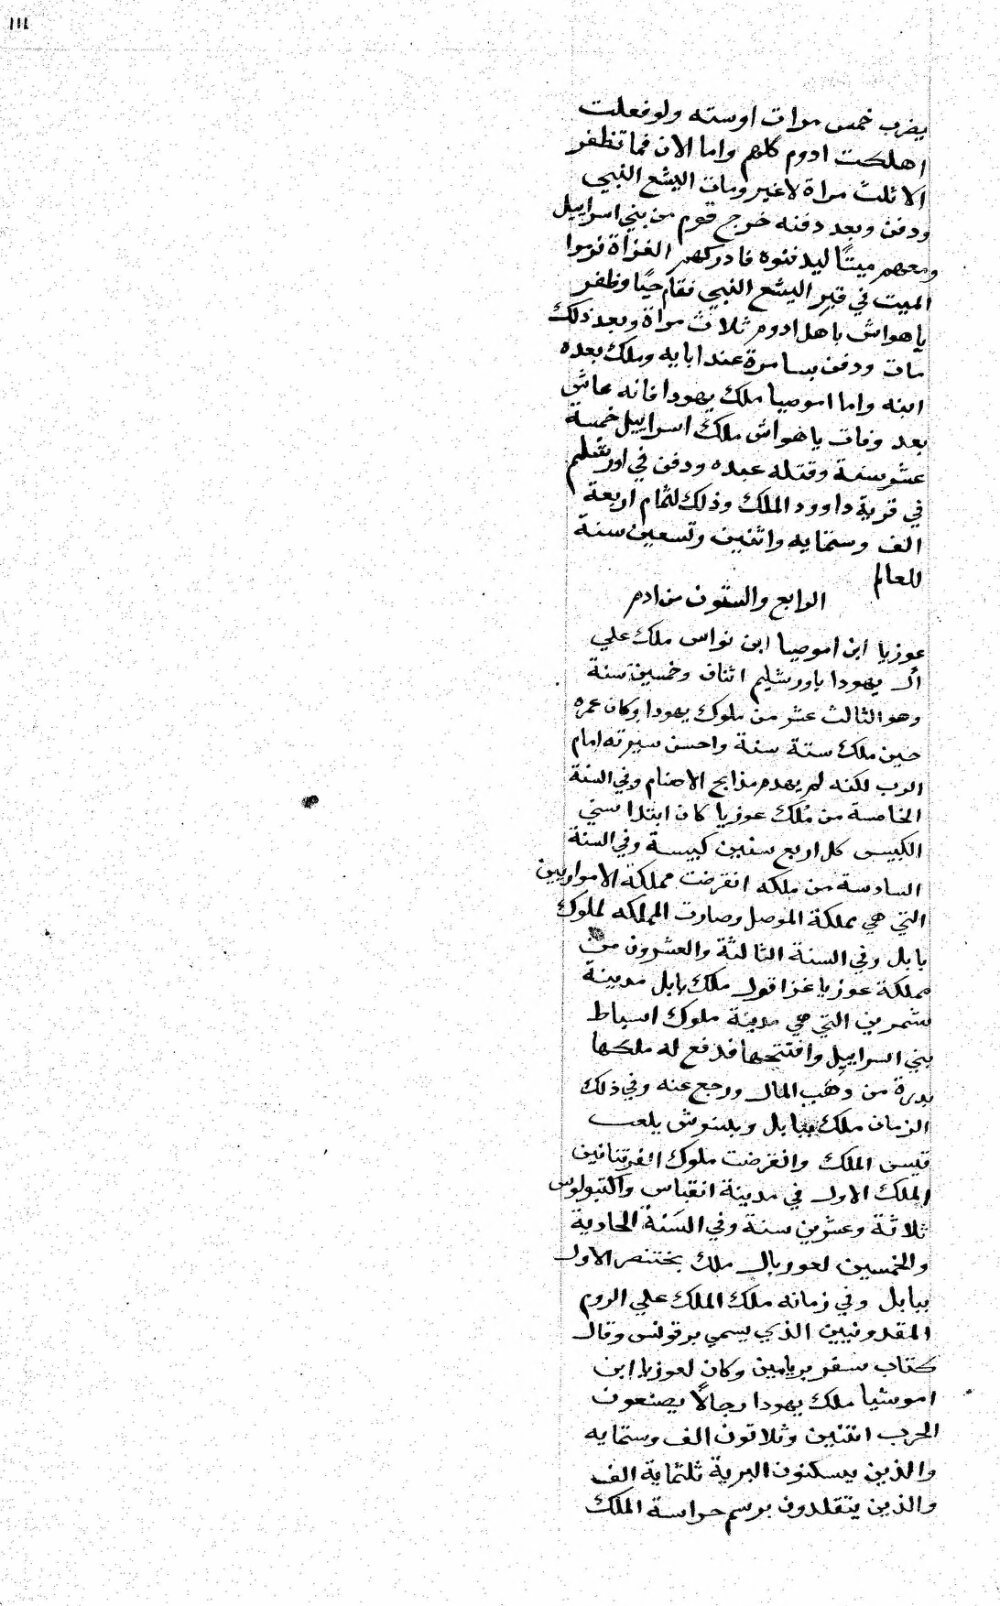 111
يضرب خمس مرات اوسته ولو فعلت
اهلكت ادوم كلهم واما الان فما تظفر
الا ثلث مراة لاغير ومات اليشع النبي
ودفن وبعد دفنه خرج قوم من بني اسراييل
ومعهم ميتًا ليدفنوه فادركهم الغزاة فرموا
الميت في قبر اليشع النبي فقام حيًا وظفر
ياهواش باهل ادوم ثلاث مراة وبعد ذلك
مات ودفن بسامرة عند ابايه وملك بعده
ابنه واما اموصيا ملك يهودا فانه عاش
بعد وفات ياهواش ملك اسراييل خمسة
عشر سنة وقتله عبده ودفن في اورشليم
في قرية داوود الملك وذلك لتمام اربعة
الف وستمايه واثنين وتسعين سنة
للعالم
الرابع والستون من ادم
عوزيا ابن اموصيا ابن نواس ملك علي
ال يهودا باورشليم اثنان وخمسين سنة
وهو الثالث عشر من ملوك يهودا وكان عمره
حين ملك ستة سنة واحسن سيرته امام
الرب لكنه لم يهدم مذابح الاصنام وفي السنة
الخامسة من مُلك عوزيا كان ابتدا سني
الكبيس كل اربع سنين كبيسة وفي السنة
السادسة من ملكه انقرضت مملكة الاموراييين
التي هي مملكة الموصل وصارت المملكه لملوك
بابل وفي السنة الثالثة والعشرون من
مملكة عوزيا غزا فول ملك بابل مدينة
شمرين التي هي مدينة ملوك اسباط
بني اسراييل وافتتحها فدفع له ملكها
بدرة من ذهب المال ورجع عنه وفي ذلك
الزمان ملك ببابل
الملك وانقرضت ملوك
الملك الاول في مدينة
ثلاثة وعشرين سنة وفي السَنة الحادية
والخمسين لعوربال ملك بختنصر الاول
ببابل وفي زمانه ملك الملك علي الروم
المقدونيين الذي يسمي برقونس وقال
كتاب سفر بريامين وكان لعوزيا ابن
اموشيا ملك يهودا رجالًا يصنعون
الحرب اثنين وثلاثون الف وستمايه
والذين يسكنون البرية ثلثماية الف
والذين يتقلدون برسم حراسة الملك